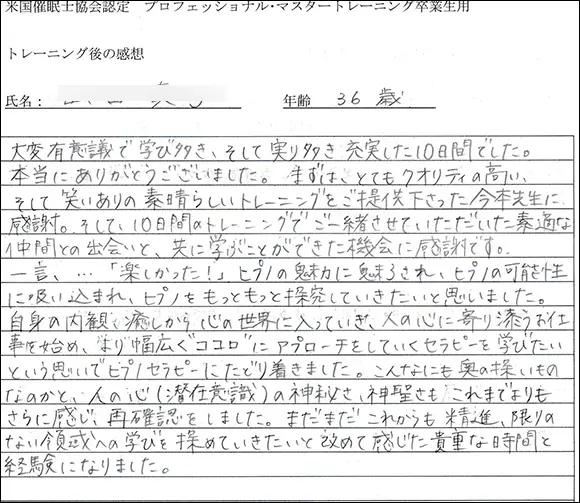 米国催眠士協会認定 プロフェッショナル・マスタートレーニング卒業生用
トレーニング後の感想
氏名： 年齢 36 歳
大変有意議で学び多き、そして実り多き充実した10日間でした。
本当にありがとうございました。まずは、とてもクオリティの高い、
そして笑いありの素晴らしいトレーニングをご提供下さった今本先生に
感謝。そして、10日間のトレーニングでご一緒させていただいた素適な
仲間との出会いと、共に学ぶことができた機会に感謝です。
一言、…「楽しかった！」ヒプノの魅力に魅了され、ヒプノの可能性
に吸い込まれ、ヒプノをもっともっと探究していきたいと思いました。
自身の内観で癒しから心の世界に入っていき、人の心に寄り添うお仕
事を始め、より幅広く"ココロ"にアプローチをしていくセラピーを学びたい
という思いでヒプノセラピーにたどり着きました。こんなにも奥の深いもの
なのかと、人の心（潜在意識）の神秘さ、神聖さも これまでよりも
さらに感じ、再確認をしました。まだまだこれからも精進、限りの
ない領域への学びを深めていきたいと改めて感じた貴重な時間と
経験になりました。